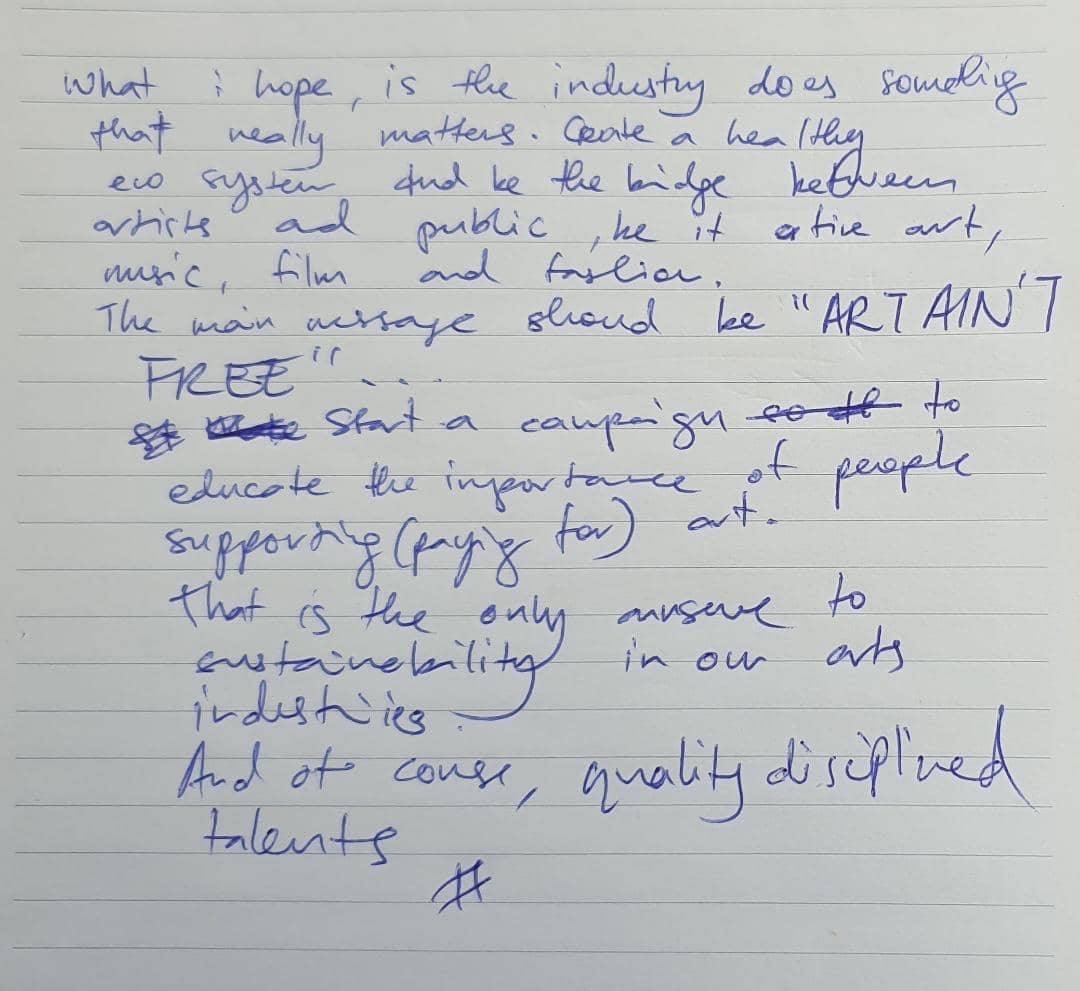 What i hope, is the industry does something
that really matters. Create a healthy
eco system And be the bridge between
artists and public, be it art,
music, film and fashion.
The main message shoud be "ART AIN'T
FREE"...
Start a campaign to
educate the importance of people
supporting (paying for) art.
That is the only answer to
sustainebility in our arts
industries.
And of course, quality disciplined
talents
#